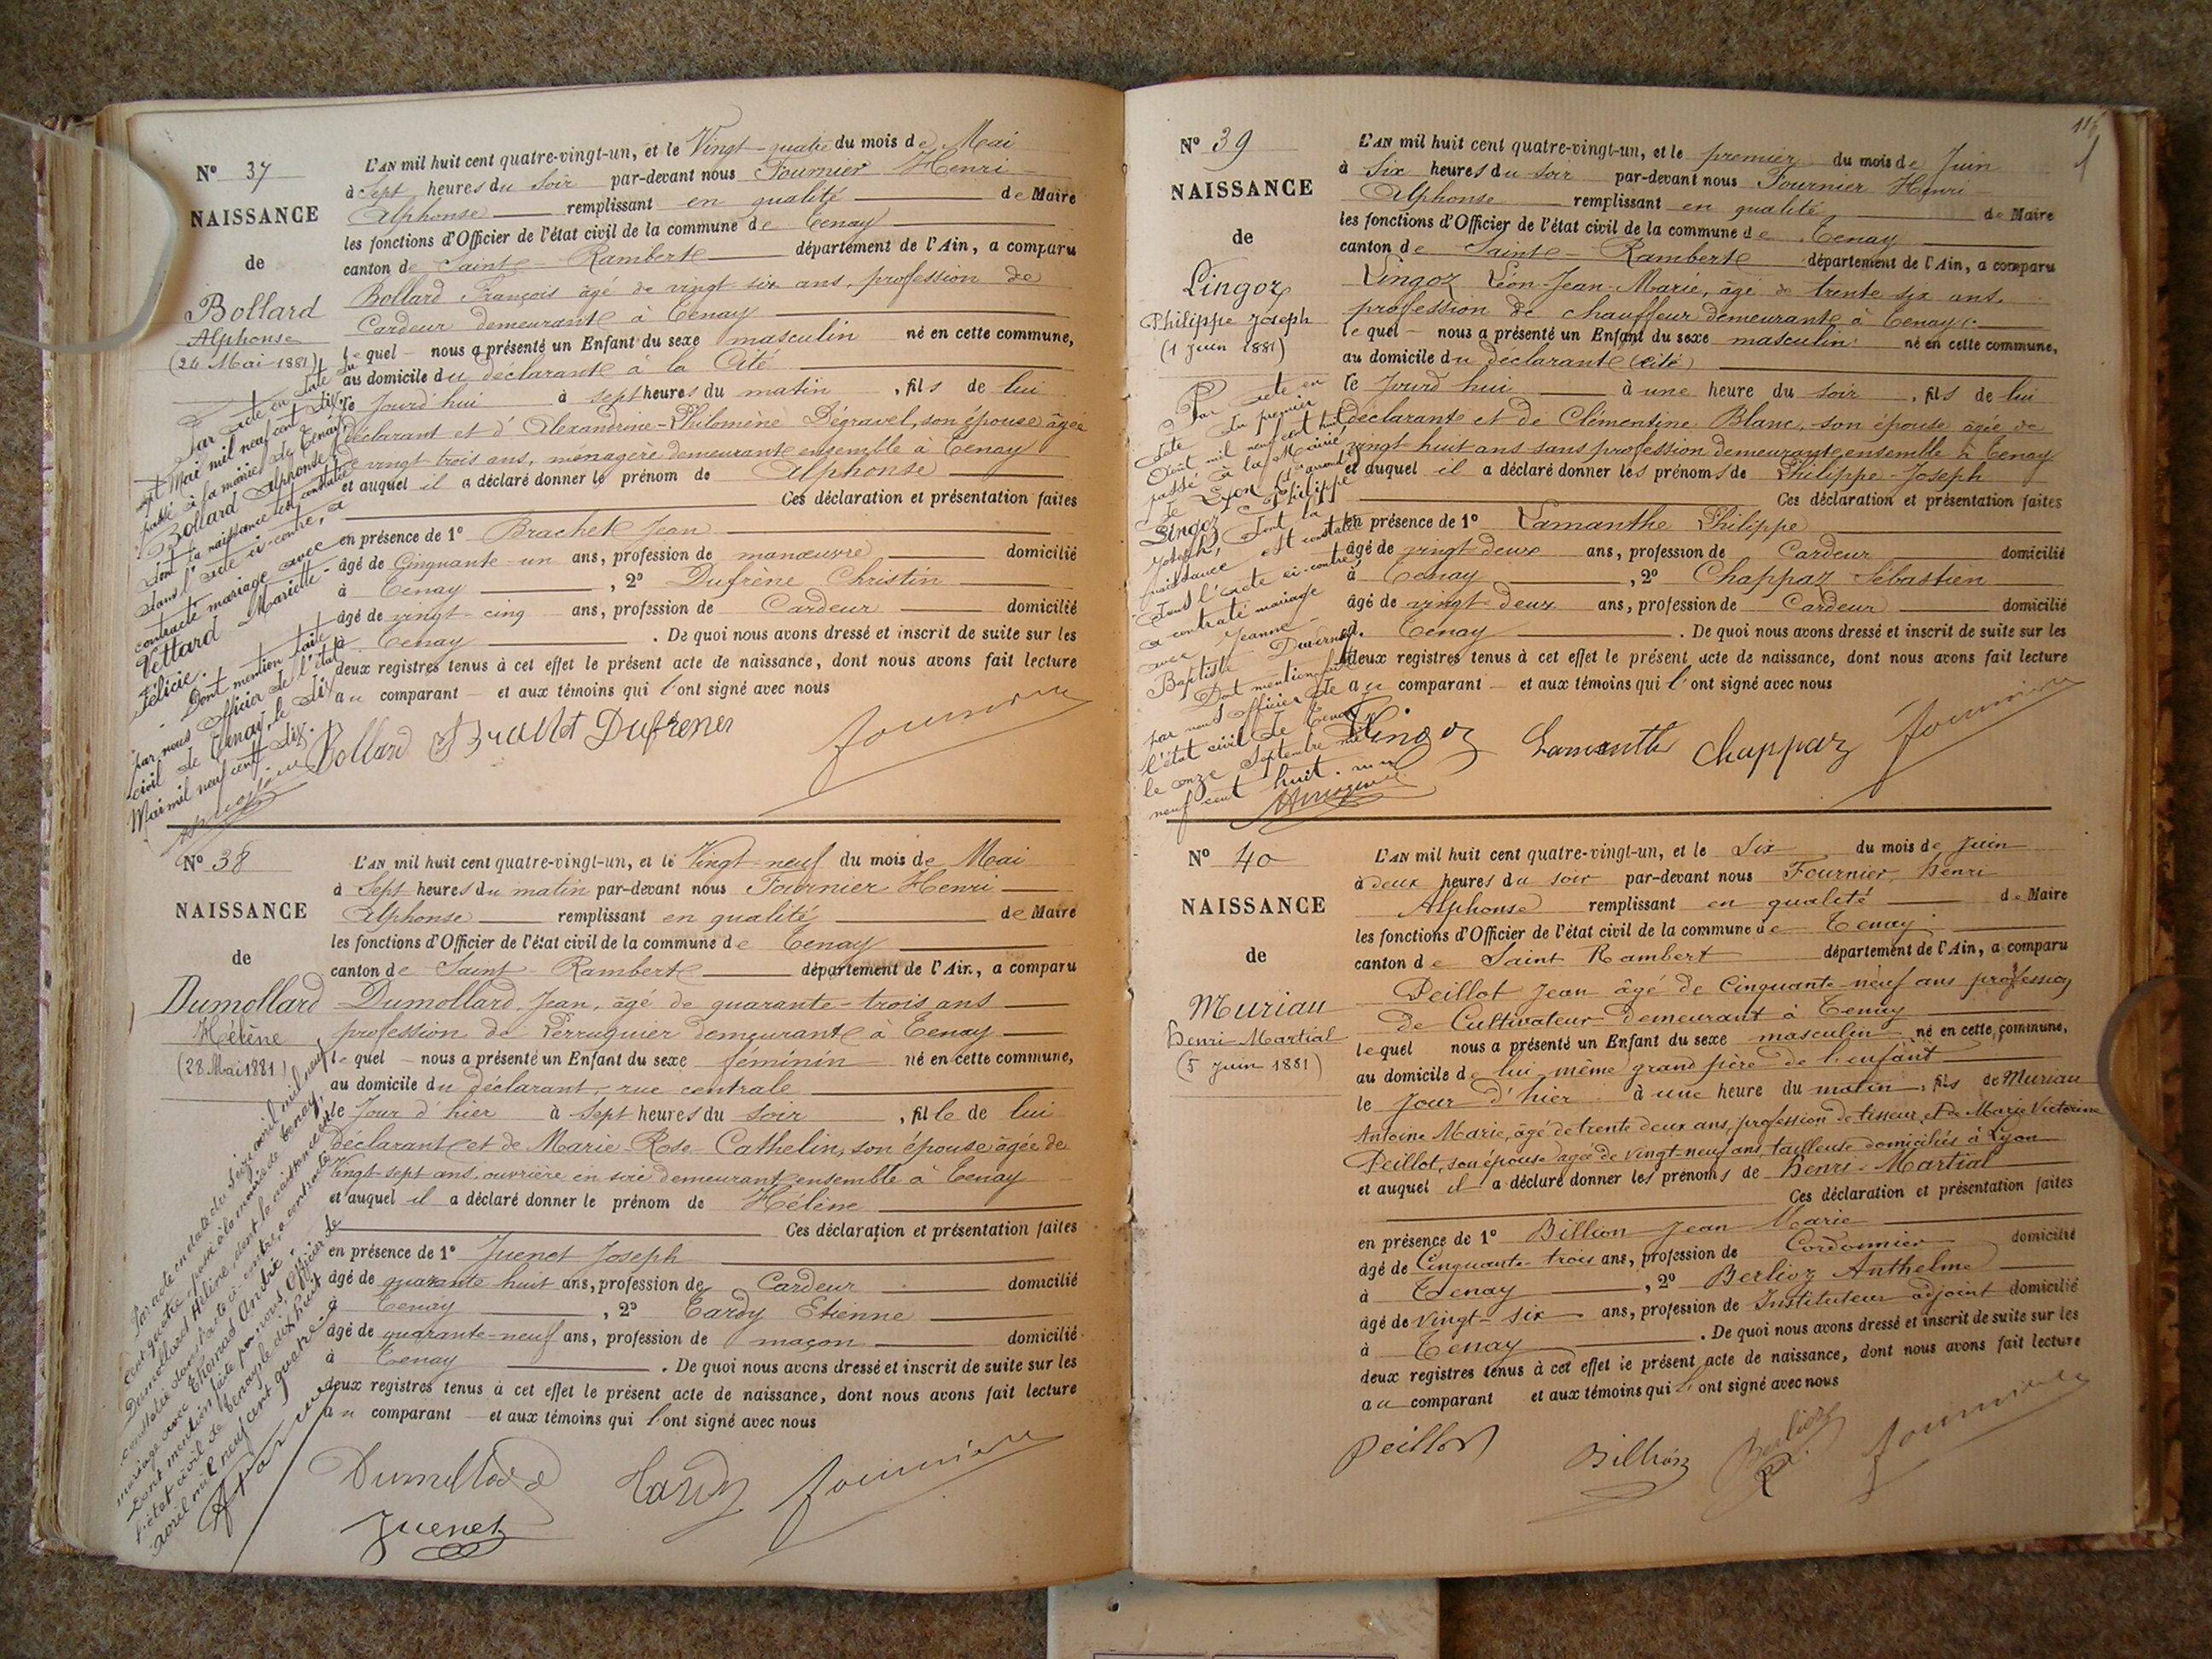 N° 37
NAISSANCE
de
Bollard
Alphonse
(24 Mai 1881)
L'AN mil huit cent quatre-vingt-un, et le Vingt-quatre du mois de Mai
à Sept heures du Soir par-devant nous Fournier Henri
Alphonse remplissant en qualité de Maire
les fonctions d'Officier de l'état civil de la commune de Tenay
canton de Saint-Rambert département de l'Ain, a comparu
Bollard François âgé de vingt-six ans, profession de
Cardeur demeurant à Tenay
lequel nous a présenté un Enfant du sexe masculin né en cette commune,
au domicile du déclarant à la Cité
le Jourd'hui à sept heures du matin, fils de lui
déclarant et d'Alexandrine-Philomène Dégravel, son épouse âgée
de vingt-trois ans, ménagère demeurant ensemble à Tenay
et auquel il a déclaré donner le prénom de Alphonse
Ces déclaration et présentation faites
en présence de 1° Brachet Jean
âgé de Cinquante-un ans, profession de manœuvre domicilié
à Tenay, 2° Dufrène Christin
âgé de vingt-cinq ans, profession de Cardeur domicilié
à Tenay. De quoi nous avons dressé et inscrit de suite sur les
deux registres tenus à cet effet le présent acte de naissance, dont nous avons fait lecture
au comparant et aux témoins qui l'ont signé avec nous
Bollard Brachet Dufrener Fournier
Par acte en date du
sept Mai mil neuf cent dix,
passé à la mairie de Tenay,
Bollard Alphonse
dont la naissance est constatée
dans l'acte ci-contre, a
contracté mariage avec
Vettard Mariette
Félicie.
Dont mention faite
par nous Officier de l'état
civil de Tenay, le dix
Mai mil neuf cent dix.
N° 38
NAISSANCE
de
Dumollard
Hélène
(28 Mai 1881)
L'AN mil huit cent quatre-vingt-un, et le Vingt-neuf du mois de Mai
à Sept heures du matin par-devant nous Fournier Henri
Alphonse remplissant en qualité de Maire
les fonctions d'Officier de l'état civil de la commune de Tenay
canton de Saint-Rambert département de l'Ain, a comparu
Dumollard, Jean, âgé de quarante-trois ans
profession de Perruquier demeurant à Tenay
lequel nous a présenté un Enfant du sexe féminin né en cette commune,
au domicile du déclarant, rue centrale
le Jour d'hier à Sept heures du soir, fille de lui
déclarant et de Marie-Rose Cathelin, son épouse âgée de
Vingt-sept ans, ouvrière en soie demeurant ensemble à Tenay
et auquel il a déclaré donner le prénom de Hélène
Ces déclaration et présentation faites
en présence de 1° Juenet Joseph
âgé de quarante huit ans, profession de Cardeur domicilié
à Tenay, 2° Tardy Etienne
âgé de quarante-neuf ans, profession de maçon domicilié
à Tenay. De quoi nous avons dressé et inscrit de suite sur les
deux registres tenus à cet effet le présent acte de naissance, dont nous avons fait lecture
au comparant et aux témoins qui l'ont signé avec nous
Dumollard Tardy Fournier
Juenet
Par acte en date du Seize avril mil neuf
cent quatre, passé à la mairie de Tenay,
Dumollard Hélène, dont la naissance est
constatée dans l'acte ci-contre, a contracté
mariage avec Thomas André.
Dont mention faite par nous, Officier de
l'état civil de Tenay, le dix huit
avril mil neuf cent quatre
N° 39
NAISSANCE
de
Lingoz
Philippe Joseph
(1 Juin 1881)
L'AN mil huit cent quatre-vingt-un, et le premier du mois de Juin
à Six heures du soir par-devant nous Fournier Henri
Alphonse remplissant en qualité de Maire
les fonctions d'Officier de l'état civil de la commune de Tenay
canton de Saint-Rambert département de l'Ain, a comparu
Lingoz Léon-Jean-Marie, âgé de trente six ans,
profession de chauffeur demeurant à Tenay
lequel nous a présenté un Enfant du sexe masculin né en cette commune,
au domicile du déclarant (Cité)
le Jourd'hui à une heure du soir, fils de lui
déclarant et de Clémentine Blanc, son épouse âgée de
vingt huit ans sans profession demeurant ensemble à Tenay
et auquel il a déclaré donner les prénoms de Philippe-Joseph
Ces déclaration et présentation faites
en présence de 1° Lamanthe Philippe
âgé de vingt-deux ans, profession de Cardeur domicilié
à Tenay, 2° Chappaz Sébastien
âgé de vingt-deux ans, profession de Cardeur domicilié
à Tenay. De quoi nous avons dressé et inscrit de suite sur les
deux registres tenus à cet effet le présent acte de naissance, dont nous avons fait lecture
au comparant et aux témoins qui l'ont signé avec nous
Lingoz Lamanthe Chappaz Fournier
Par acte en
date du premier
Août mil neuf cent huit
passé à la Mairie
de Lyon
Lingoz Philippe
Joseph, dont la
naissance est constatée
dans l'acte ci-contre,
a contracté mariage
avec Jeanne
Baptiste
Dont mention faite
par nous Officier de
l'état civil de Tenay
le onze Septembre mil
neuf cent huit.
N° 40
NAISSANCE
de
Muriau
Henri-Martial
(5 Juin 1881)
L'AN mil huit cent quatre-vingt-un, et le Six du mois de Juin
à deux heures du soir par-devant nous Fournier Henri
Alphonse remplissant en qualité de Maire
les fonctions d'Officier de l'état civil de la commune de Tenay
canton de Saint Rambert département de l'Ain, a comparu
Peillot Jean âgé de Cinquante-neuf ans profession
de Cultivateur demeurant à Tenay
lequel nous a présenté un Enfant du sexe masculin né en cette commune,
au domicile de lui même grand père de l'enfant
le Jour d'hier à une heure du matin, fils de Muriau
Antoine Marie, âgé de trente deux ans, profession de tisseur, et de Marie Victorine
Peillot, son épouse âgée de vingt-neuf ans, tailleuse domiciliés à Lyon
et auquel il a déclaré donner les prénoms de Henri-Martial
Ces déclaration et présentation faites
en présence de 1° Billion Jean Marie
âgé de Cinquante-trois ans, profession de Cordonnier domicilié
à Tenay, 2° Berlioz Anthelme
âgé de Vingt-six ans, profession de Instituteur adjoint domicilié
à Tenay. De quoi nous avons dressé et inscrit de suite sur les
deux registres tenus à cet effet le présent acte de naissance, dont nous avons fait lecture
au comparant et aux témoins qui l'ont signé avec nous
Peillot Billion Berlioz Fournier